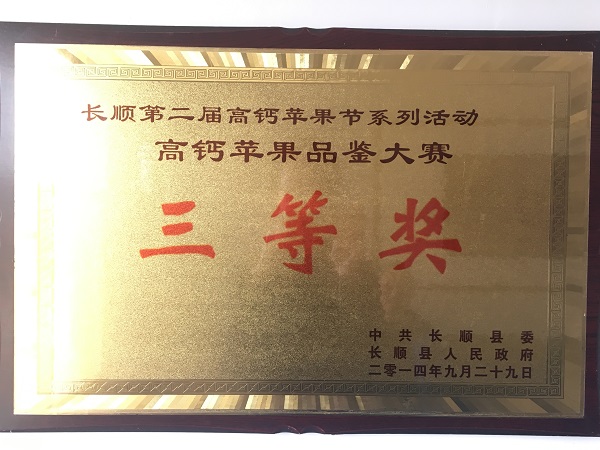 长顺第二届高钙苹果节系列活动
高钙苹果品鉴大赛
三等奖
中共长顺县委
长顺县人民政府
二零一四年九月二十九日